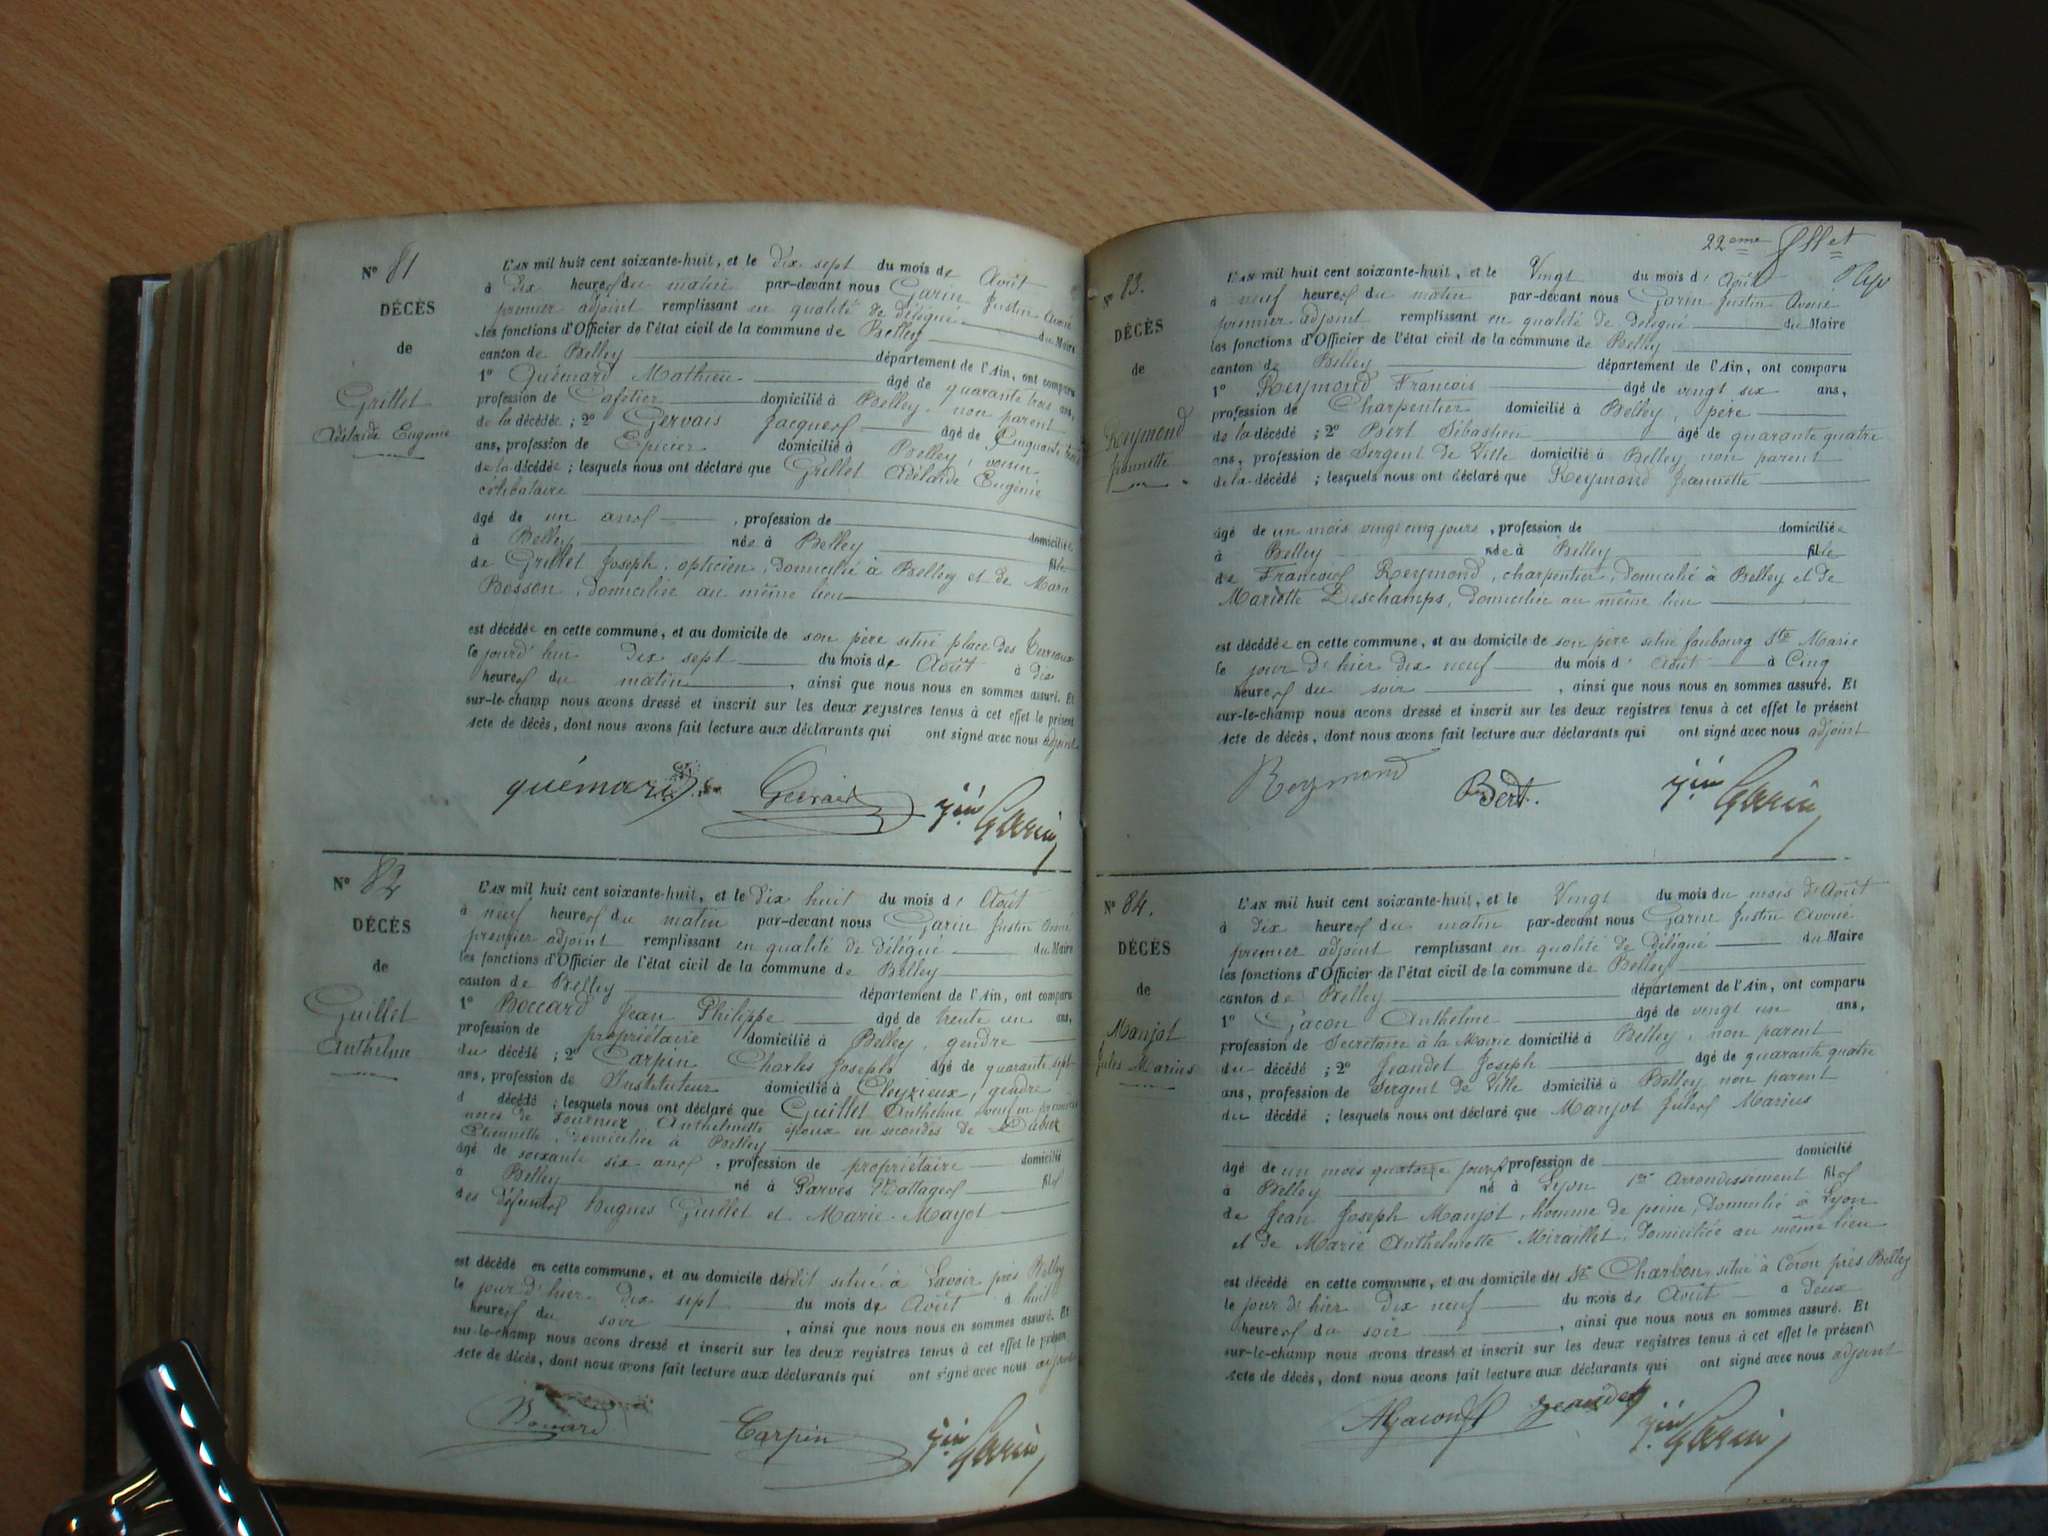 Nº 81
DÉCÈS
de
Grillet
Adélaïde Eugénie
L'AN mil huit cent soixante-huit, et le dix sept du mois de Août
à dix heures du matin par-devant nous Garin Justin Avoué
premier adjoint remplissant en qualité de délégué du Maire
les fonctions d'Officier de l'état civil de la commune de Belley
canton de Belley département de l'Ain, ont comparu
1º Quémard Mathieu âgé de quarante trois ans,
profession de Cafetier domicilié à Belley, non parent
de la décédée ; 2º Gervais Jacques âgé de Cinquante trois
ans, profession de Epicier domicilié à Belley, voisin
de la décédée ; lesquels nous ont déclaré que Grillet Adélaïde Eugénie
célibataire
âgé de un ans , profession de
à Belley née à Belley domiciliée fille
de Grillet Joseph, opticien, domicilié à Belley et de Marie
Bosson, domiciliée au même lieu
est décédée en cette commune, et au domicile de son père situé place des Terreaux
le jourd'hui dix sept du mois de Août à dix
heures du matin , ainsi que nous nous en sommes assuré. Et
sur-le-champ nous avons dressé et inscrit sur les deux registres tenus à cet effet le présent
Acte de décès, dont nous avons fait lecture aux déclarants qui ont signé avec nous adjoint
quémard Gervais Jin Garin
Nº 82
DÉCÈS
de
Guillet
Anthelme
L'AN mil huit cent soixante-huit, et le dix huit du mois d' Août
à neuf heures du matin par-devant nous Garin Justin Avoué
premier adjoint remplissant en qualité de délégué du Maire
les fonctions d'Officier de l'état civil de la commune de Belley
canton de Belley département de l'Ain, ont comparu
1º Boccard Jean Philippe âgé de trente un ans,
profession de propriétaire domicilié à Belley, gendre
du décédé ; 2º Carpin Charles Joseph âgé de quarante sept
ans, profession de Instituteur domicilié à Cleyzieux, gendre
d décédé ; lesquels nous ont déclaré que Guillet Anthelme veuf en premières
noces de Fournier Anthelmette époux en secondes de
Etiennette, domicilié à Belley
âgé de soixante six ans , profession de propriétaire domicilié
à Belley né à Parves fils
des défunts Hugues Guillet et Marie Mayot
est décédé en cette commune, et au domicile dudit situé à Lavoir près Belley
le jour d'hier dix sept du mois de Août à huit
heures du soir , ainsi que nous nous en sommes assuré. Et
sur-le-champ nous avons dressé et inscrit sur les deux registres tenus à cet effet le présent
Acte de décès, dont nous avons fait lecture aux déclarants qui ont signé avec nous adjoint
Boccard Carpin Jin Garin
22eme ffllet
Nº 83.
DÉCÈS
de
Reymond
Jeannette
L'AN mil huit cent soixante-huit, et le Vingt du mois d' Août
à neuf heures du matin par-devant nous Garin Justin Avoué
premier adjoint remplissant en qualité de délégué du Maire
les fonctions d'Officier de l'état civil de la commune de Belley
canton de Belley département de l'Ain, ont comparu
1º Reymond François âgé de vingt six ans,
profession de Charpentier domicilié à Belley, père
de la décédé ; 2º Bert Sébastien âgé de quarante quatre
ans, profession de Sergent de Ville domicilié à Belley non parent
de la décédé ; lesquels nous ont déclaré que Reymond Jeannette
âgé de un mois vingt cinq jours , profession de domiciliée
à Belley née à Belley fille
de François Reymond, charpentier, domicilié à Belley et de
Mariette Deschamps, domiciliée au même lieu
est décédée en cette commune, et au domicile de son père situé faubourg Ste Marie
le jour d'hier dix neuf du mois d' Août à Cinq
heures du soir , ainsi que nous nous en sommes assuré. Et
sur-le-champ nous avons dressé et inscrit sur les deux registres tenus à cet effet le présent
Acte de décès, dont nous avons fait lecture aux déclarants qui ont signé avec nous adjoint
Reymond Bert. Jin Garin
Nº 84.
DÉCÈS
de
Manjot
Jules Marius
L'AN mil huit cent soixante-huit, et le Vingt du mois du mois d'Août
à dix heures du matin par-devant nous Garin Justin Avoué
premier adjoint remplissant en qualité de délégué du Maire
les fonctions d'Officier de l'état civil de la commune de Belley
canton de Belley département de l'Ain, ont comparu
1º Gacon Anthelme âgé de vingt un ans,
profession de Secrétaire à la Mairie domicilié à Belley, non parent
du décédé ; 2º Jeandet Joseph âgé de quarante quatre
ans, profession de Sergent de Ville domicilié à Belley non parent
du décédé ; lesquels nous ont déclaré que Manjot Jules Marius
âgé de un mois quatorze jours, profession de domicilié
à Belley né à Lyon 1er Arrondissement fils
de Jean Joseph Manjot, homme de peine, domicilié à Lyon
et de Marie Anthelmette Miraillet, domiciliée au même lieu
est décédé en cette commune, et au domicile de Sr Charbon, situé à Coron près Belley
le jour d'hier dix neuf du mois de Août à deux
heures du soir , ainsi que nous nous en sommes assuré. Et
sur-le-champ nous avons dressé et inscrit sur les deux registres tenus à cet effet le présent
Acte de décès, dont nous avons fait lecture aux déclarants qui ont signé avec nous adjoint
AGacon Jeandet Jin Garin